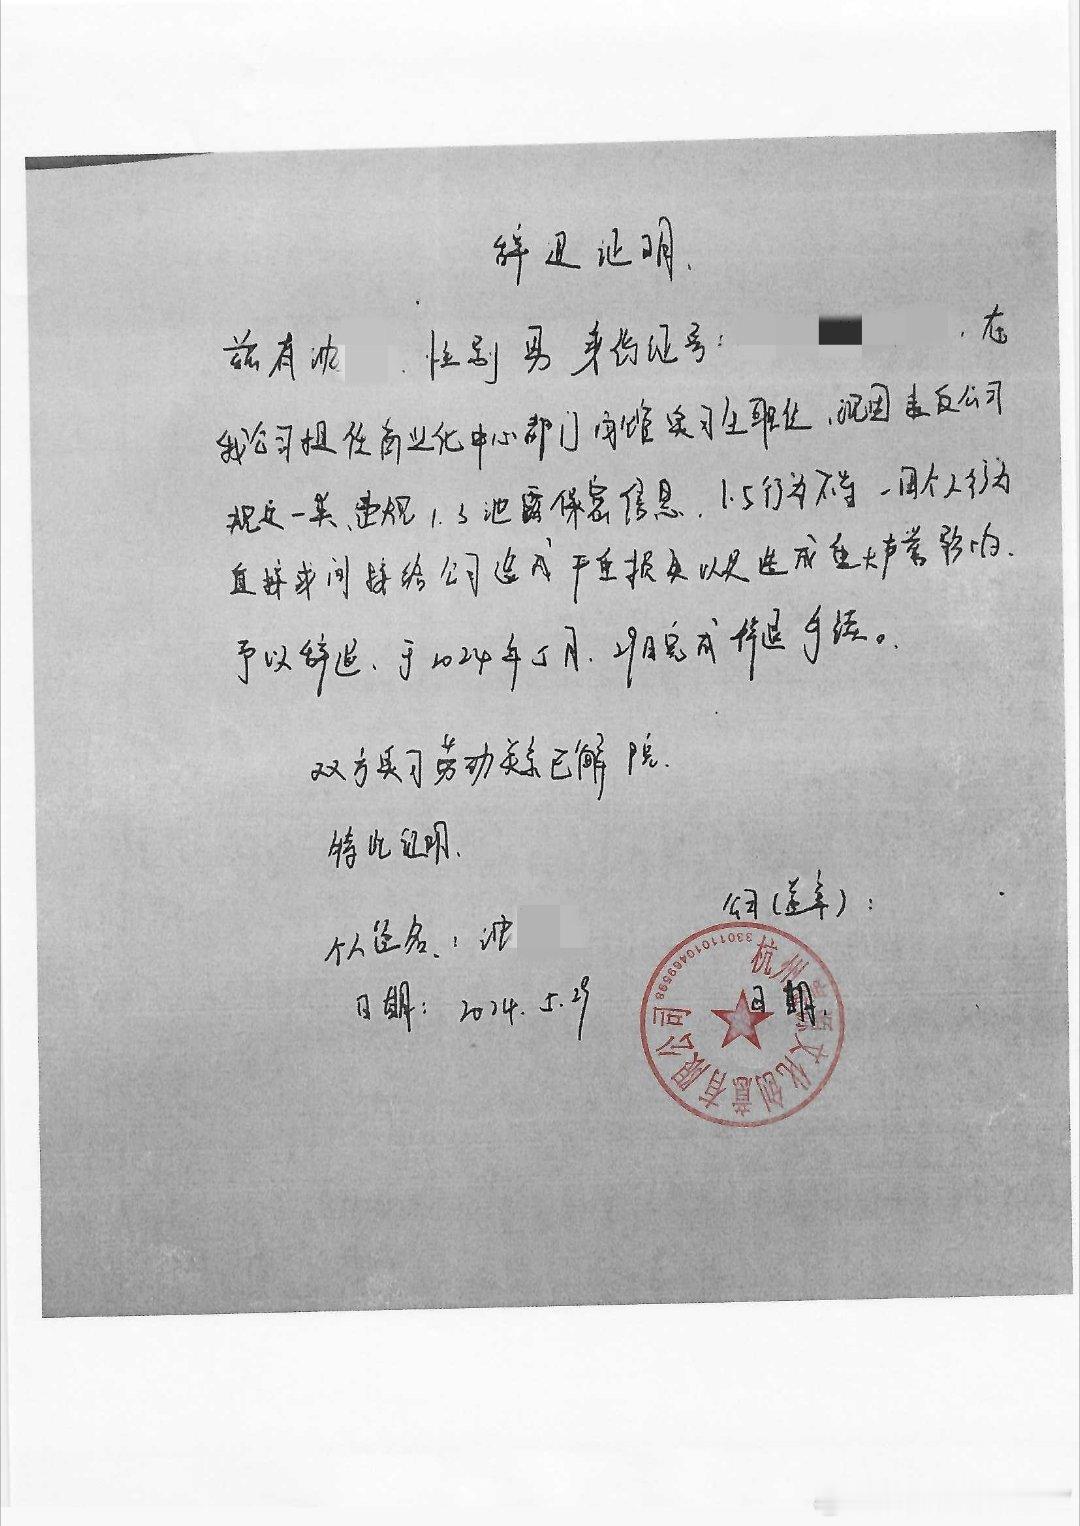 辞退证明.
兹有沈 . 性别 男 身份证号: , 在
我公司担任商业化中心部门 实习生职位, 现因违反公司
规定一类、违规 1.3 泄露保密信息, 1.5行为不当 - 因个人行为
直接或间接给公司造成严重损失以及造成重大声誉影响.
予以辞退、于2024年5月.29日完成辞退手续。
双方实习劳动关系已解除.
特此证明.
公司(盖章):
个人签名.: 沈
日期.
日期: 2024.5.29
杭州 文化创意有限公司
33011010469598